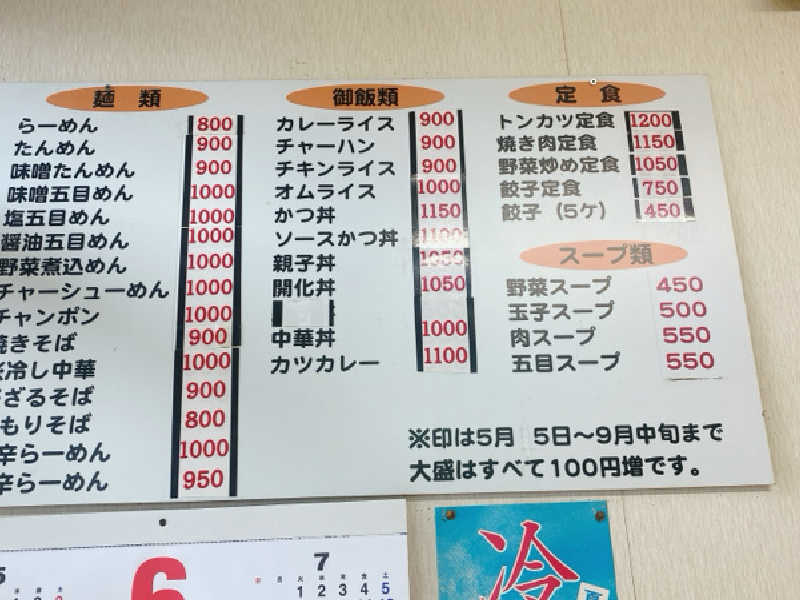 麺類
らーめん 800
たんめん 900
味噌たんめん 900
味噌五目めん 1000
塩五目めん 1000
醤油五目めん 1000
野菜煮込めん 1000
チャーシューめん 1000
チャンポン 1000
焼きそば 900
冷し中華 1000
ざるそば 900
もりそば 800
辛らーめん 1000
辛らーめん 950
御飯類
カレーライス 900
チャーハン 900
チキンライス 900
オムライス 1000
かつ丼 1150
ソースかつ丼 1100
親子丼 1050
開化丼 1050
中華丼 1000
カツカレー 1100
定食
トンカツ定食 1200
焼き肉定食 1150
野菜炒め定食 1050
餃子定食 750
餃子（5ケ） 450
スープ類
野菜スープ 450
玉子スープ 500
肉スープ 550
五目スープ 550
※印は5月 5日〜9月中旬まで
大盛はすべて100円増です。
5
6
7
月 火 水 木 金 土
1 2 3 4 5
冷